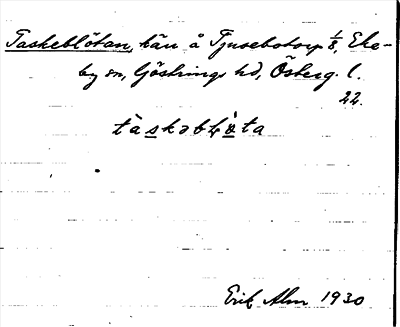 Taskeblötan, kärr å Tjusebotorp 1/8, Eke-
by sn, Göstrings hd, Österg. l.
22.
tàskəbḷö̀ta
Erik Alm 1930